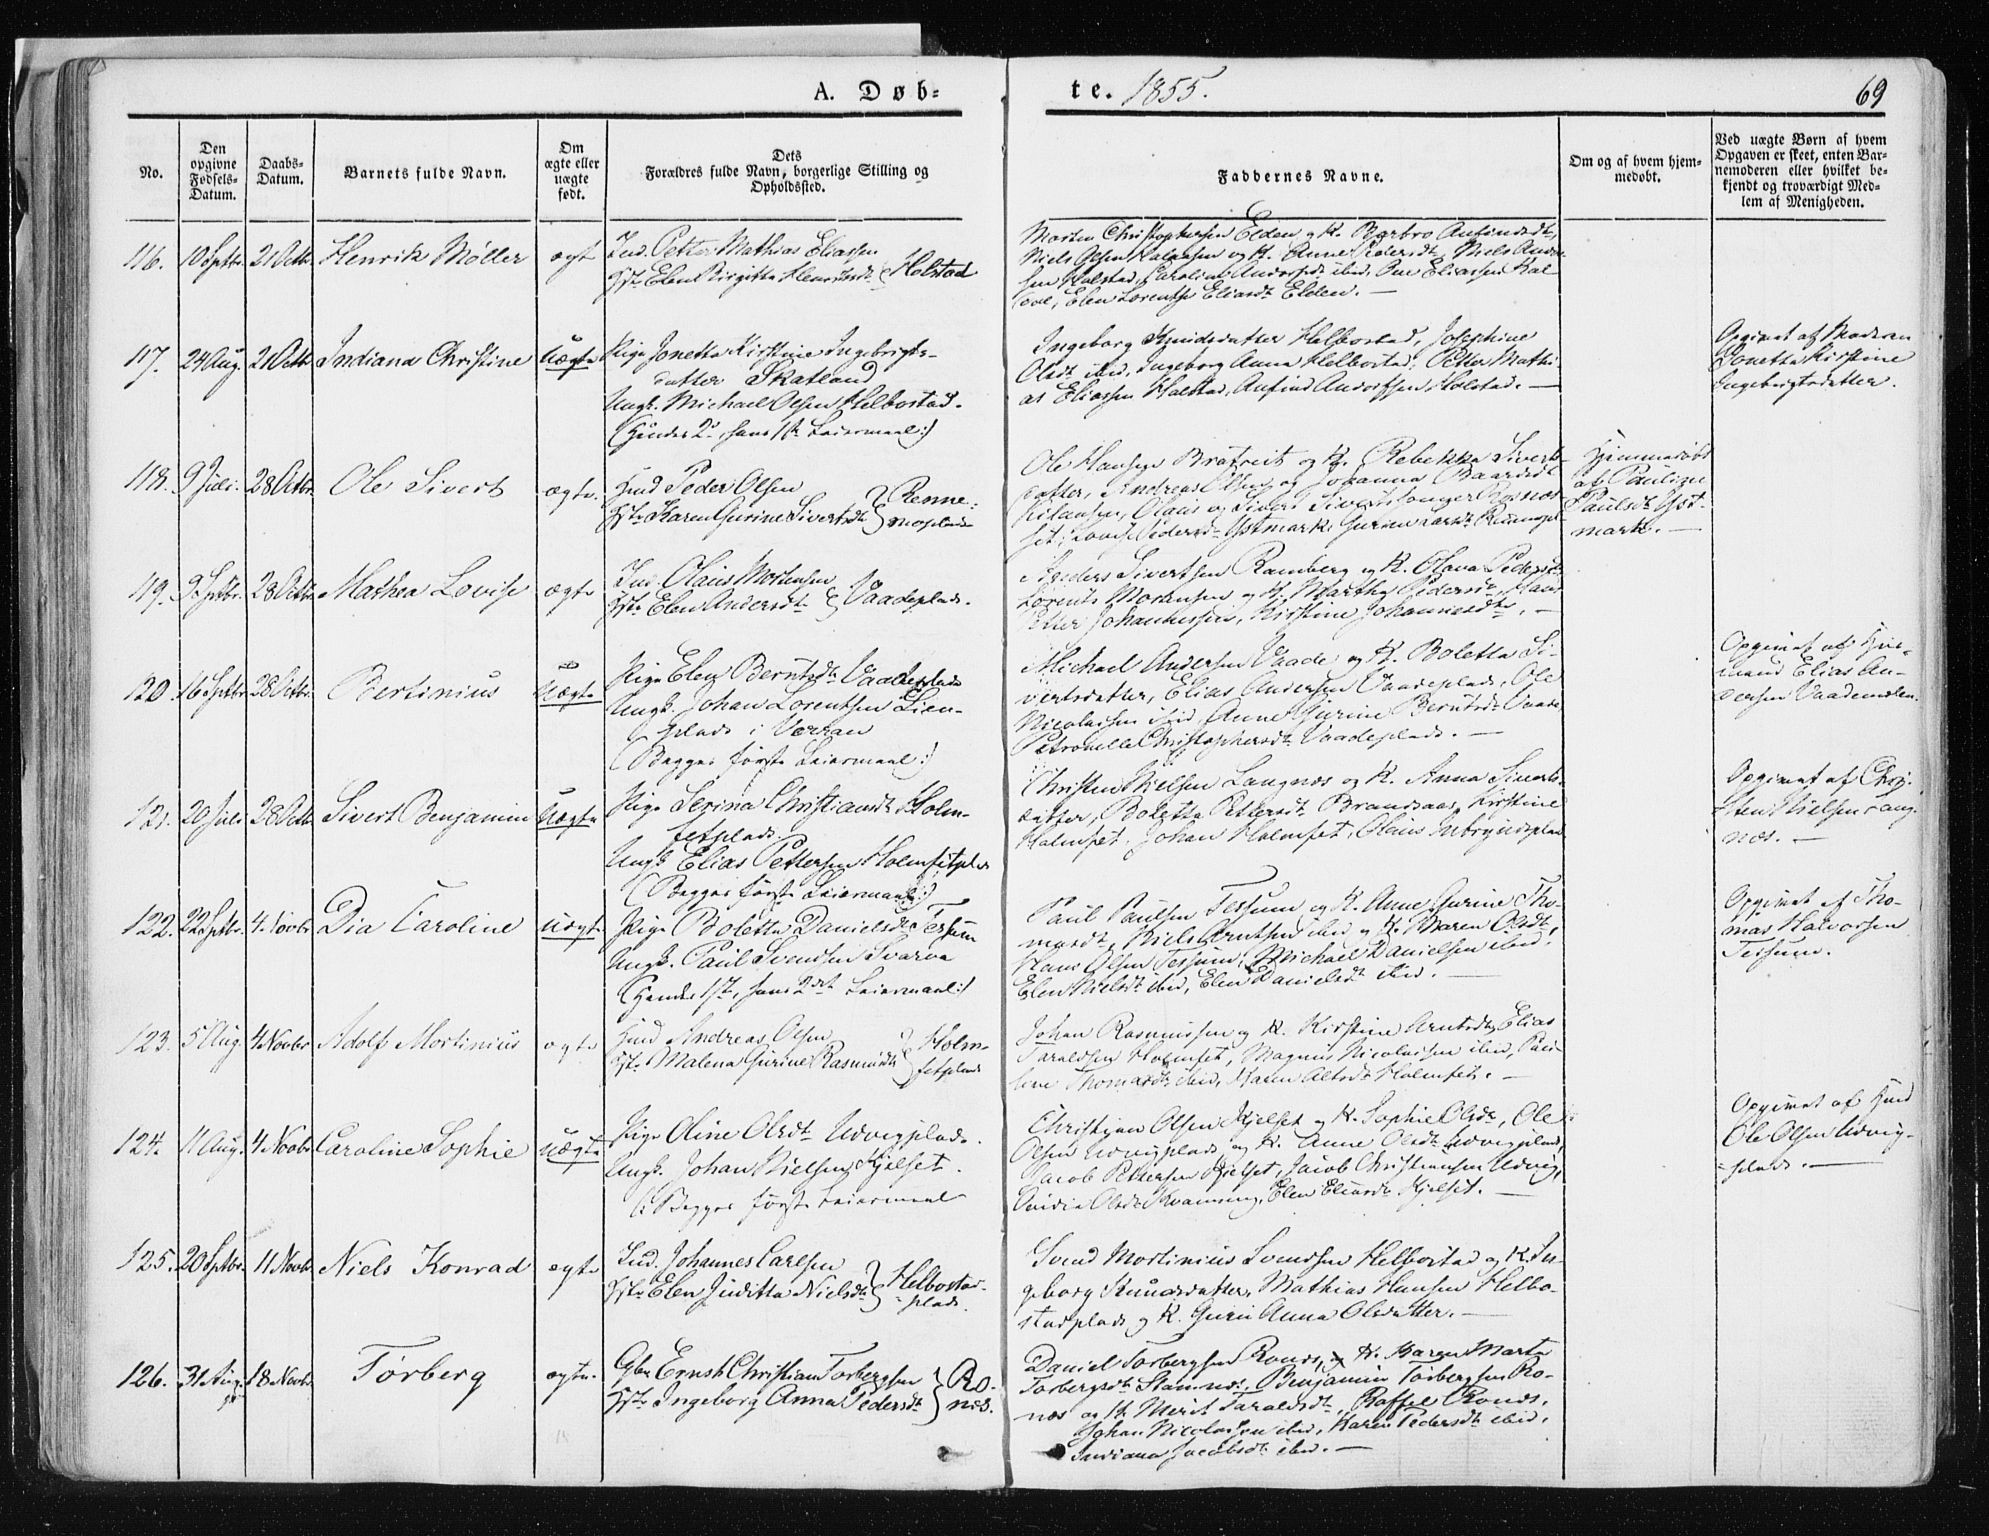 A. Døb-
te. 1855.
69
No.
Den opgivne Fødsels-Datum.
Daabs-Datum.
Barnets fulde Navn.
Om ægte eller uægte født.
Dets Forældres fulde Navn, borgerlige Stilling og Opholdssted.
Faddernes Navne.
Om og af hvem hjem-medøbt.
Ved uægte Børn af hvem Opgaven er skeet, enten Bar-nemoderen eller hvilket be-kjendt og troværdigt Med-lem af Menigheden.
116. 10 Septbr. 21 Octbr. Henrik Møller ægt
Ind. Petter Mathias Eliassen
Elen Birgitta Henriksdt } Holstad
Morten Christophersen Elden og K. Barbro Anfindsdt,
Niels Olsen og K. Anne Pedersdt, Niels
Holstad, ibid,
Elen Eliasdt Elden. —
117. 24 Aug. 21 Octbr. Indiana Christine uægte
Pige Jonetta Kirstine Ingebrigts-
datter Skatland
Ungk. Michael Olsen Helbostad.
(Hendes 2d, hans 1ste Leiermaal:)
Ingeborg Knudsdatter Helbostad, Josephine
Olsdt ibid, Ingeborg Anna Helbostad, Petter Mathi-
as Eliassen Holstad, Anfind Holstad. —
Opgivet af Moderen
Jonetta Kirstine
Ingebrigtsdatter.
118. 9 Juli. 28 Octbr. Ole Sivert ægte.
Huud Peder Olsen
Karen Gurine Sivertsdt } Renne-
Ole Hansen Bratreit og K. Rebekka Siverts-
datter, Andreas Olsen og Johanna
Olaus og Sivert
Pedersdt Ystmark, Gurine
Hjemmedøbt
af Pauline
Paulsdt Yst-
mark. —
119. 9 Septbr. 28 Octbr. Mathea Lovise ægte
Ind. Olaus Mortensen
Elen Andersdt } Vaadeplads.
Anders Sivertsen Ramberg og K. Olava Pedersdt
Lorents Mortensen og K. Martha Pedersdt, Hans
Petter Johannessen, Kirstine Johannesdt. —
120. 16 Septbr. 28 Octbr. Bertinius uægte
Pige Elen Berntsdt Vaadeplads
Ungk. Johan Lorentsen Lien-
plads i Værran
(Begges første Leiermaal:)
Michael Andersen Vaade og K. Boletta Si-
vertsdatter, Elias Andersen Vaadeplads, Ole
Nicolaisen ibid, Anne Gurine Berntsdt Vaade
Petronelle Christophersdt Vaadeplads. —
Opgivet af
Elias An-
dersen
121. 20 Juli 28 Octbr. Sivert Benjamin uægte
Pige Serina Christiansdt Holm-
setplads.
Ungk. Elias Pettersen Holmsetplds
(Begges første Leiermaal:)
Christen Nielsen Langnes og K. Anna Siverts-
datter, Boletta Pettersdt Brandsaas, Kirstine
Holmset, Johan Holmset, Olaus
Opgivet af Chri-
sten Nielsen Lang-
næs. —
122. 22 Septbr. 4 Novbr. Dia Caroline uægte
Pige Boletta Danielsdt Tessum
Ungk. Paul Svendsen Svarva
(Hendes 1ste, hans 2det Leiermaal:)
Paul Paulsen Tessum og K. Anne Gurine Tho-
masdt, Niels Arntsen ibid og K. Maren Olsdt,
Hans Olsen Tessum, Michael Danielsen ibid,
Elen Nielsdt ibid, Elen Danielsdt ibid. —
Opgivet af Tho-
mas Halvorsen
Tessum.
123. 5 Aug. 4 Novbr Adolf Mortinius ægte
Huud Andreas Olsen
Malena Gurine Rasmusdt } Holm-
setplads
Johan Rasmussen og K. Kirstine Arntsdt, Elias
Taraldsen Holmset, Magnus Nicolaisen ibid, Pau-
line Thomasdt ibid, Karen Holmset. —
124. 11 Aug. 4 Novbr Caroline Sophie uægte
Pige Oline Olsdt Udvigplads.
Ungk. Johan Nielsen Kjelset.
(: Begges første Leiermaal
Christian Olsen Kjelset og K. Sophie Olsdt, Ole
Olsen Udvigplads og K. Anne Olsdt Udvigplads,
Jacob Pettersen Kjelset, Jacob Christiansen Udvig,
Olsdt Elen Eliasdt Kjelset. —
Opgivet af Huud
Ole Olsen Udvig-
plads. —
125. 20 Septbr. 11 Novbr. Niels Konrad ægte
Ind. Johannes Carlsen
Elen Juditta Nielsdt } Helbostad-
plads.
Svend Mortinius Svendsen Helbostad og K. In-
geborg Knudsdatter, Mathias Hansen Helbo-
stadplads og K. Guru Anna Olsdatter. —
126. 31 Aug. 18 Novbr. Torberg ægte.
Gbr Ernst Christian Torbergsen
Ingeborg Anna Pedersdt } Ro-
næs.
Daniel Torbergsen Ronæs, og K. Karen Marta
Torbergsdt Benjamin Torbergsen Ro-
næs og K. Merit Taraldsdt, Raffel Ronæs,
Johan Nicolaisen ibid, Karen Pedersdt ibid,
Indiana Jacobsdt ibid. —